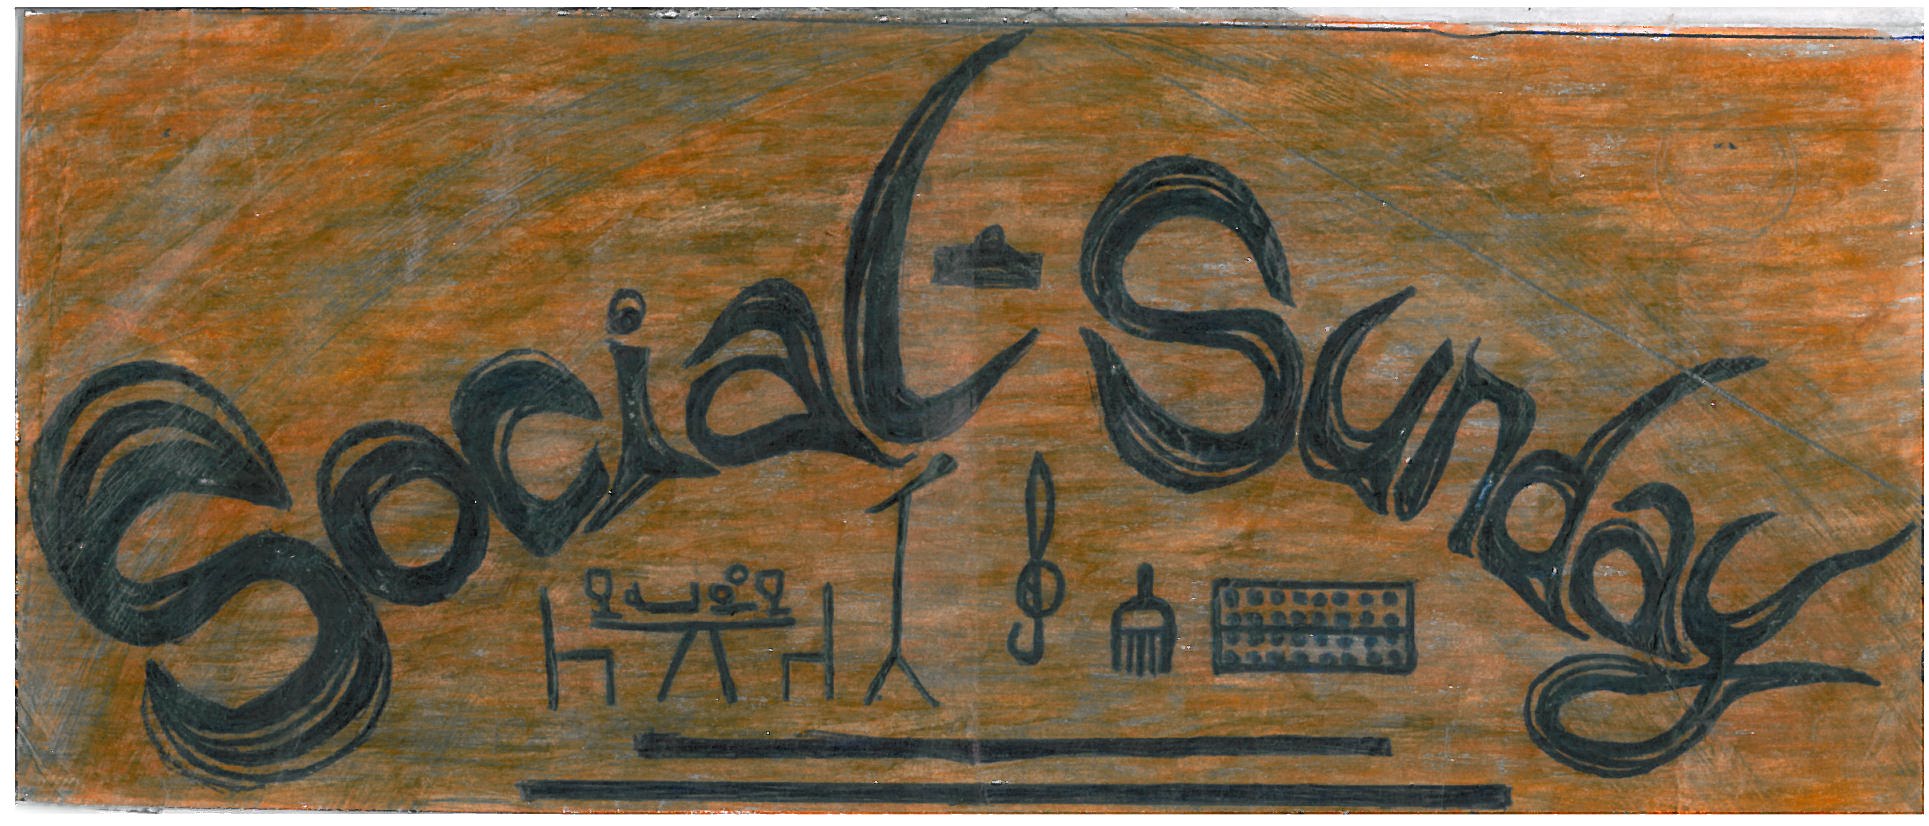 Social Sunday